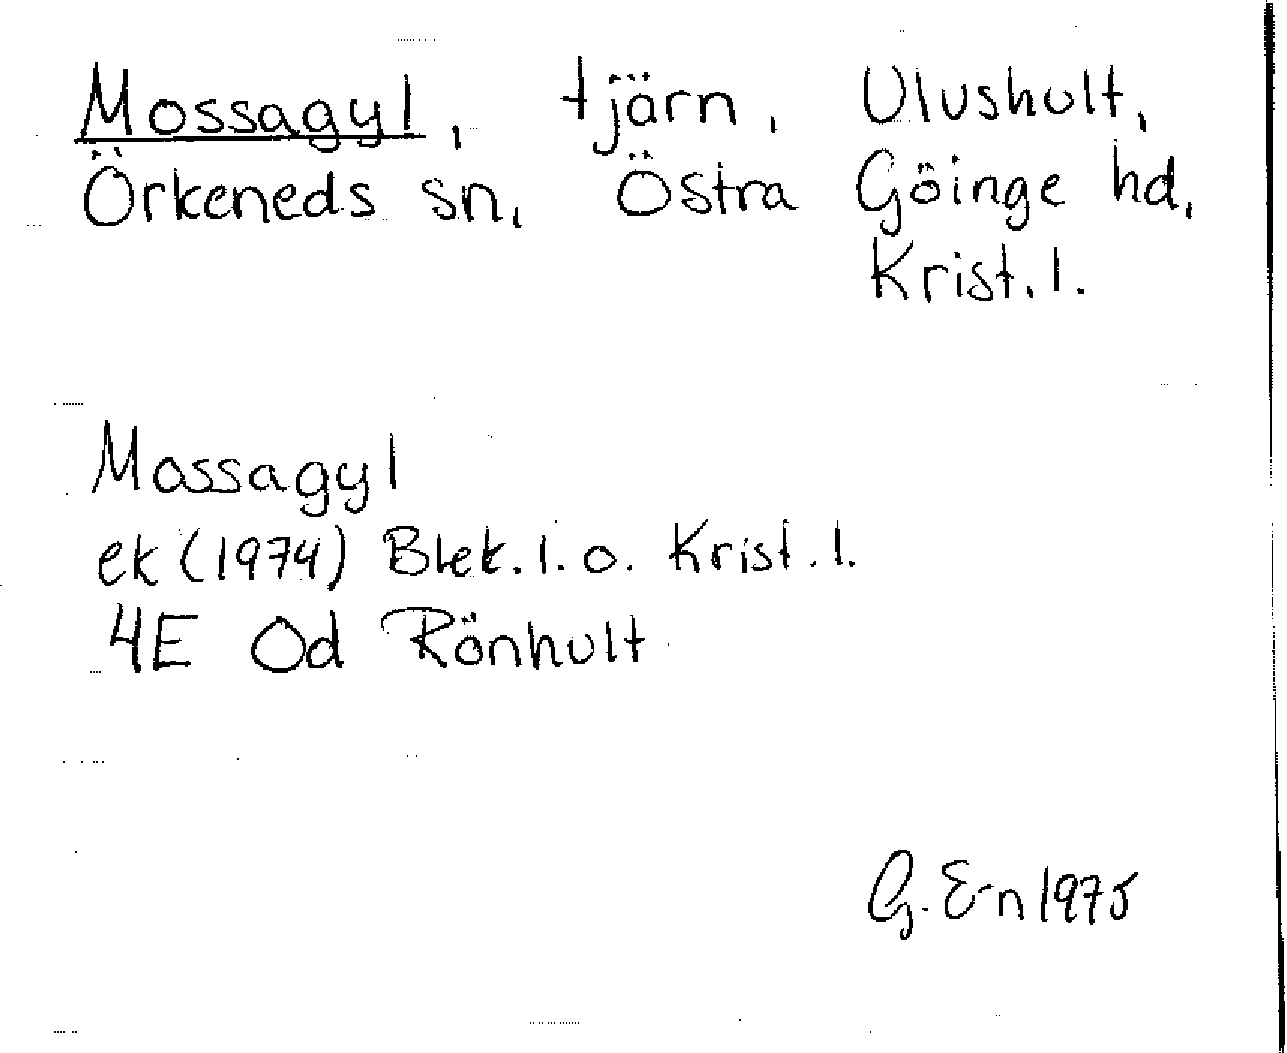 Mossagyl, tjärn, Ulushult,
Örkeneds sn, Östra Göinge hd,
Krist. l.
Mossagyl
ek (1974) Blek. l. o. Krist. l.
4E 0d Rönhult
G. E-n 1975